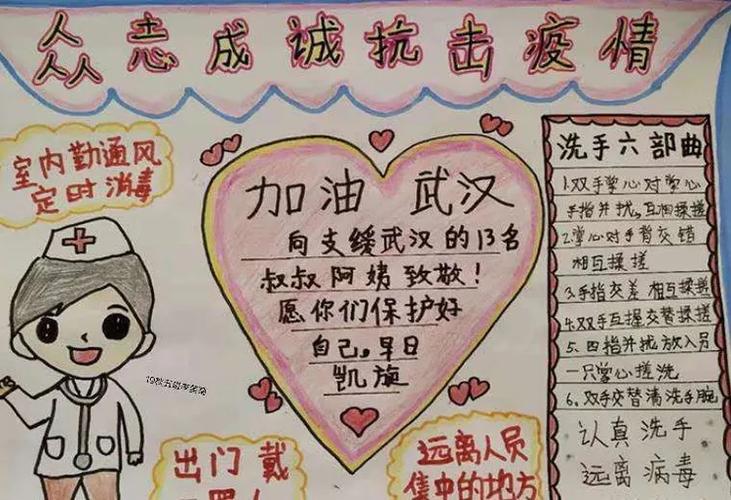 众志成诚抗击疫情
室内勤通风
定时消毒
加油 武汉
向支缓武汉的13名
叔叔阿姨致敬！
愿你们保护好
自己。早日
凯旋
洗手六部曲
1.双手掌心对掌心
手指并扰,互相揉搓
2.掌心对手背交错
相互揉搓
3.手指交差 相互揉搓
4.双手互握交替揉搓
5、四指并扰放入另
一只掌心搓洗
6、双手交替清洗手腕
认真洗手
远离病毒
出门戴
远离人员
集中的地方